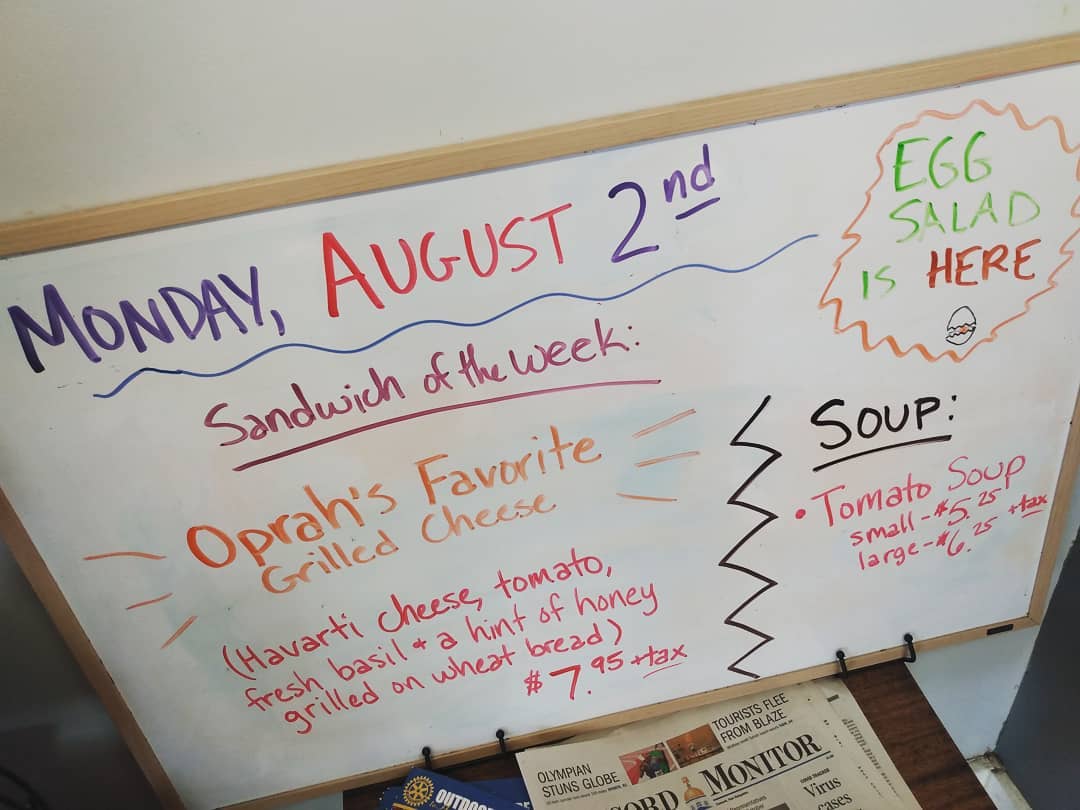 MONDAY, AUGUST 2nd
EGG
SALAD
IS HERE
Sandwich of the week:
Oprah's Favorite
Grilled Cheese
(Havarti cheese, tomato,
fresh basil + a hint of honey
grilled on wheat bread)
$7.95 +tax
SOUP:
• Tomato Soup
small - $5.25
large - $6.25 +tax
OLYMPIAN
STUNS GLOBE
TOURISTS FLEE
FROM BLAZE
MONITOR
Virus
cases